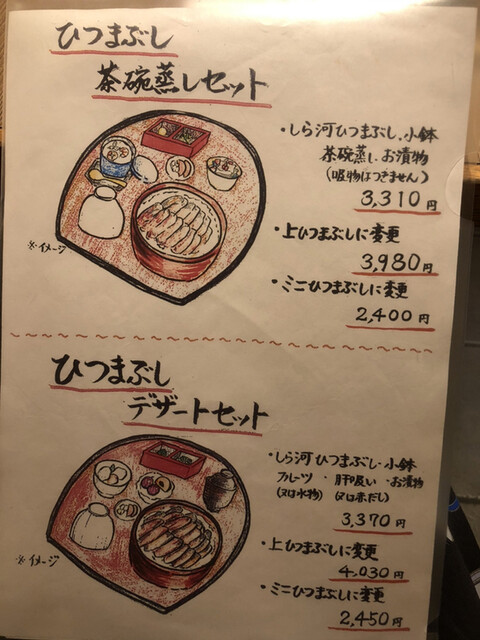 ひつまぶし
茶碗蒸しセット
・しら河ひつまぶし、小鉢
茶碗蒸し、お漬物
(吸物はつきません)
3,310円
・上ひつまぶしに変更
3,980円
・ミニひつまぶしに変更
2,400円
※イメージ
ひつまぶし
デザートセット
・しら河ひつまぶし・小鉢
フルーツ・肝吸い・お漬物
(又は氷物)(又は赤だし)
3,370円
・上ひつまぶしに変更
4,030円
・ミニひつまぶしに変更
2,450円
※イメージ